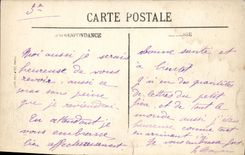 3e
CARTE POSTALE
CORRESPONDANCE
Moi aussi je serais
heureuse de vous
revoir, aussi ce
sera sans peine
que je reviendrai
En attendant je
vous embrasse
bien affectueusement
Bonne santé et
à bientôt
J'ai eu des quantités
de lettres du petit
et de tout le
monde aussi j'étais
heureuse comme tout
en arrivant
Je vous embrasse